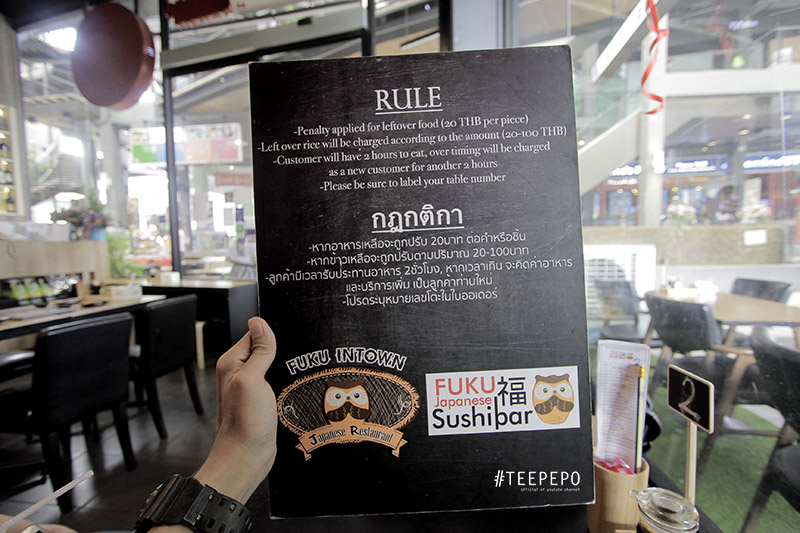 RULE
-Penalty applied for leftover food (20 THB per piece)
-Left over rice will be charged according to the amount (20-100 THB)
-Customer will have 2 hours to eat, over timing will be charged
as a new customer for another 2 hours
-Please be sure to label your table number
กฎกติกา
-หากอาหารเหลือจะถูกปรับ 20บาท ต่อคำหรือชิ้น
-หากข้าวเหลือจะถูกปรับตามปริมาณ 20-100บาท
-ลูกค้ามีเวลารับประทานอาหาร 2ชั่วโมง, หากเวลาเกิน จะคิดค่าอาหาร
และบริการเพิ่ม เป็นลูกค้าท่านใหม่
-โปรดระบุหมายเลขโต๊ะในใบออเดอร์
FUKU INTOWN
Japanese Restaurant
FUKU 福
Japanese
Sushibar
2
#TEEPEPO
official of youtube channel